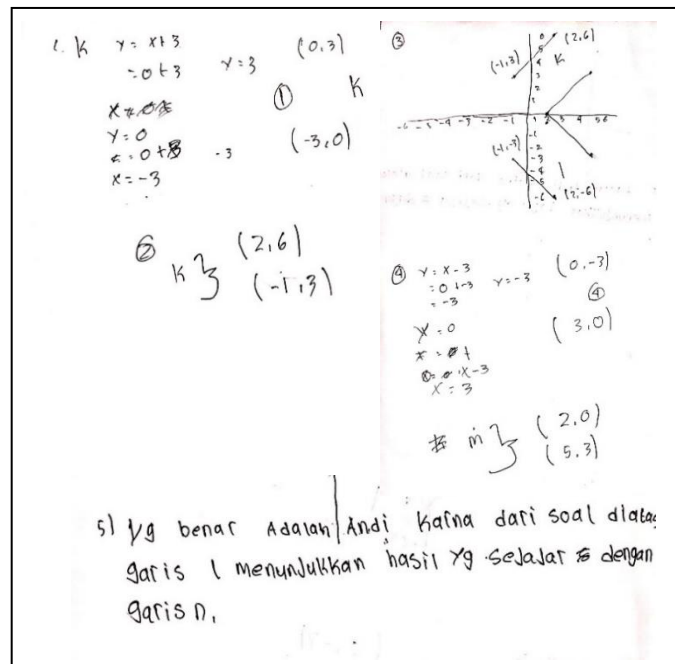 1. K y = x+3 (0,3)
= 0+3 y=3
① K
y=0 (-3,0)
-3
x=-3
② K } (2,6)
(-1,3)
③
(2,6)
(-1,3) K
-6 -5 -4 -3 -2 -1 1 2 3 4 5 6
(-1,-3)
(2,-6)
④ y = x-3 (0,-3)
= 0+-3 y=-3
= -3 ④
y=0 (3,0)
x=3
m } (2,0)
(5,3)
5) Yg benar Adalah Andi Karna dari soal diatas
garis l menunjukkan hasil yg sejajar dengan
garis n.